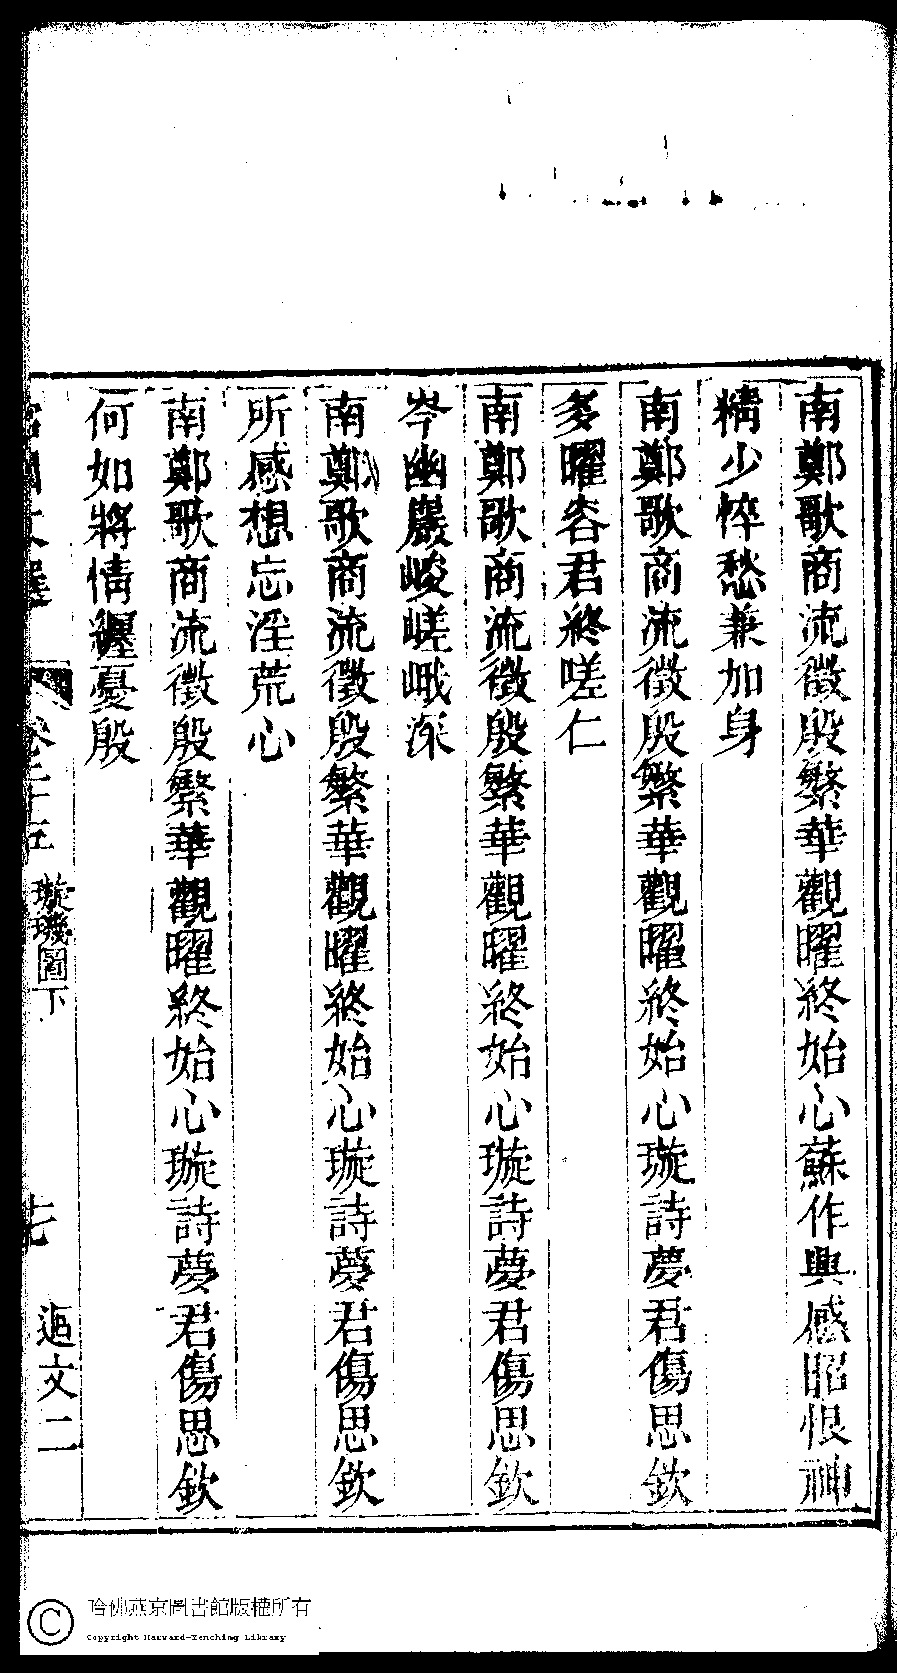 南鄭歌商流徵殷繁華觀曜終始心蘇作興感昭恨神
精少悴愁兼加身
南鄭歌商流徵殷繁華觀曜終始心璇詩夢君傷思欽
多曜容君終嗟仁
南鄭歌商流徵殷繁華觀曜終始心璇詩夢君傷思欽
岑幽巖峻嵯峨深
南鄭歌商流徵殷繁華觀曜終始心璇詩夢君傷思欽
所感想忘淫荒心
南鄭歌商流徵殷繁華觀曜終始心璇詩夢君傷思欽
何如將情纏憂殷
卷二十五 璇璣圖下 七 迴文二
哈佛燕京圖書館版權所有
Copyright Harvard-Yenching Library